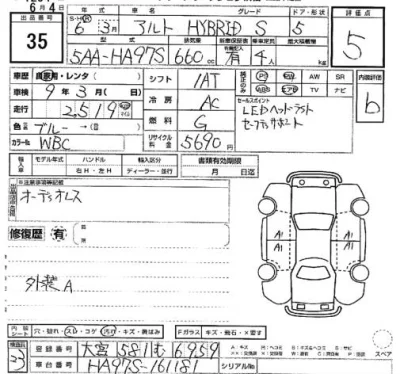 6月4日
出品番号 年式 車名 グレード ドア・形状 評価点
35
S・H・R 6年3月 アルト HYBRID S 5
5
型式 排気量 新車保証書 乗車定員 最大積載量
5AA-HA97S 660cc 有 4人
車歴 自家用・レンタ( ) シフト IAT
純正のみ PS PW AW SR
WBS エアB TV ナビ
内装評価
b
車検 9年3月( 日)
冷房 AC
セールスポイント
LEDヘッドライト
セーフティサポート
走行 2,519
燃料 G
色 ブルー →( )
カラーNo. WBC
リサイクル料金 5690円
輸入車 モデル年式 ハンドル 輸入区分 書類有効期限
年 右H・左H ディーラー・並行 月 日迄
※注意事項等記載
オーディオレス
修復歴 有
A1 A1
A1 A1
外装A
内装 シート 穴・切れ・スレ・コゲ 汚れ・キズ・異臭み Fガラス キズ・飛石・×要す
スペア
検査員
23
登録番号 大宮 581 む 6959
車台番号 HA97S-161181 シリアルNo.